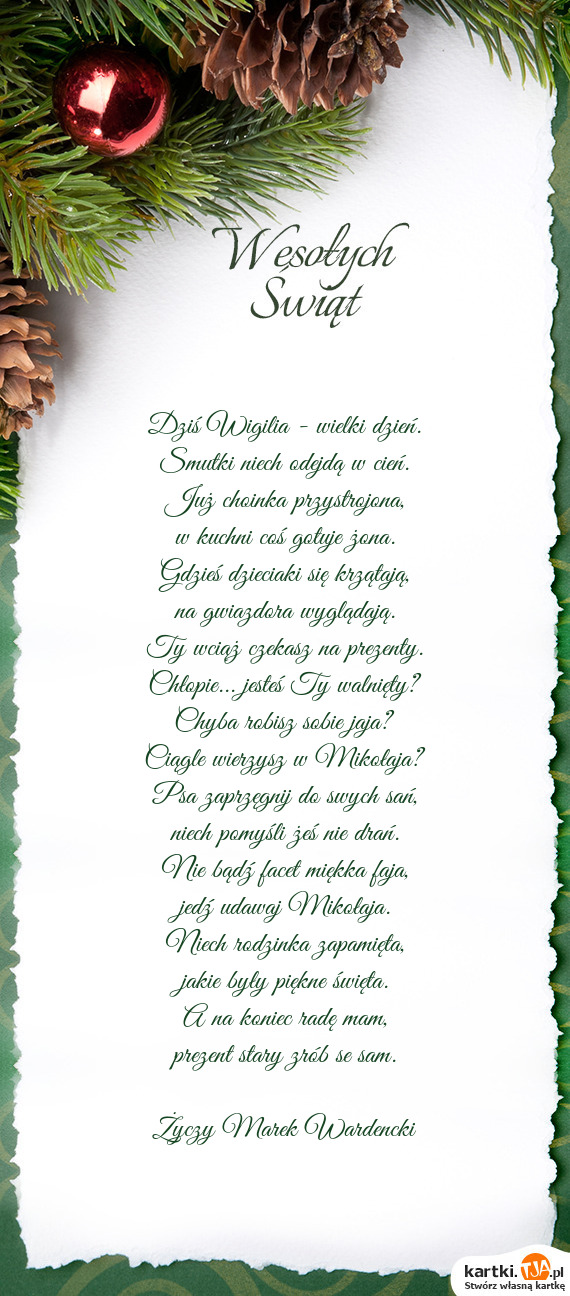 Wesołych
Świąt
Dziś Wigilia - wielki dzień.
Smutki niech odejdą w cień.
Już choinka przystrojona,
w kuchni coś gotuje żona.
Gdzieś dzieciaki się krzątają,
na gwiazdora wyglądają.
Ty wciąż czekasz na prezenty.
Chłopie... jesteś Ty walnięty?
Chyba robisz sobie jaja?
Ciągle wierzysz w Mikołaja?
Psa zaprzęgnij do swych sań,
niech pomyśli żeś nie drań.
Nie bądź facet miękka faja,
jedź udawaj Mikołaja.
Niech rodzinka zapamięta,
jakie były piękne święta.
A na koniec radę mam,
prezent stary zrób se sam.
Życzy Marek Wardencki
kartki.TJA.pl
Stwórz własną kartkę